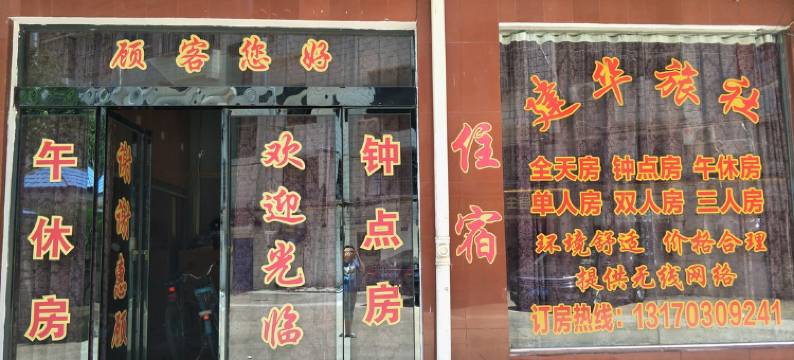 顾客您好
午休房
谢谢惠顾
欢迎光临
钟点房
住宿
建华旅社
全天房 钟点房 午休房
单人房 双人房 三人房
环境舒适 价格合理
提供无线网络
订房热线：13170309241